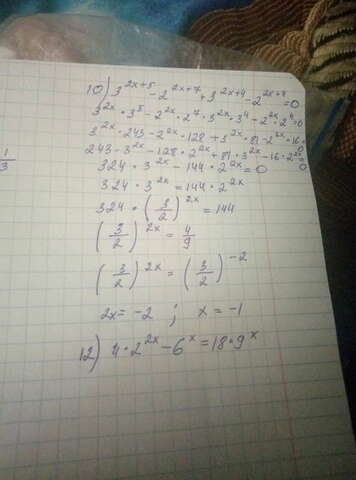 10) 3^{2x+5} - 2^{2x+7} + 3^{2x+4} - 2^{2x+4} = 0
3^{2x} · 3^5 - 2^{2x} · 2^7 · 3^{2x} · 3^4 - 2^{2x} · 2^4 = 0
3^{2x} · 243 - 2^{2x} · 128 + 3^{2x} · 81 - 2^{2x} · 16 = 0
243 · 3^{2x} - 128 · 2^{2x} + 81 · 3^{2x} - 16 · 2^{2x} = 0
324 · 3^{2x} - 144 · 2^{2x} = 0
324 · 3^{2x} = 144 · 2^{2x}
324 · (3/2)^{2x} = 144
1/3
(3/2)^{2x} = 4/9
(3/2)^{2x} = (3/2)^{-2}
2x = -2 ; x = -1
12) 4 · 2^{2x} - 6^x = 18 · 9^x